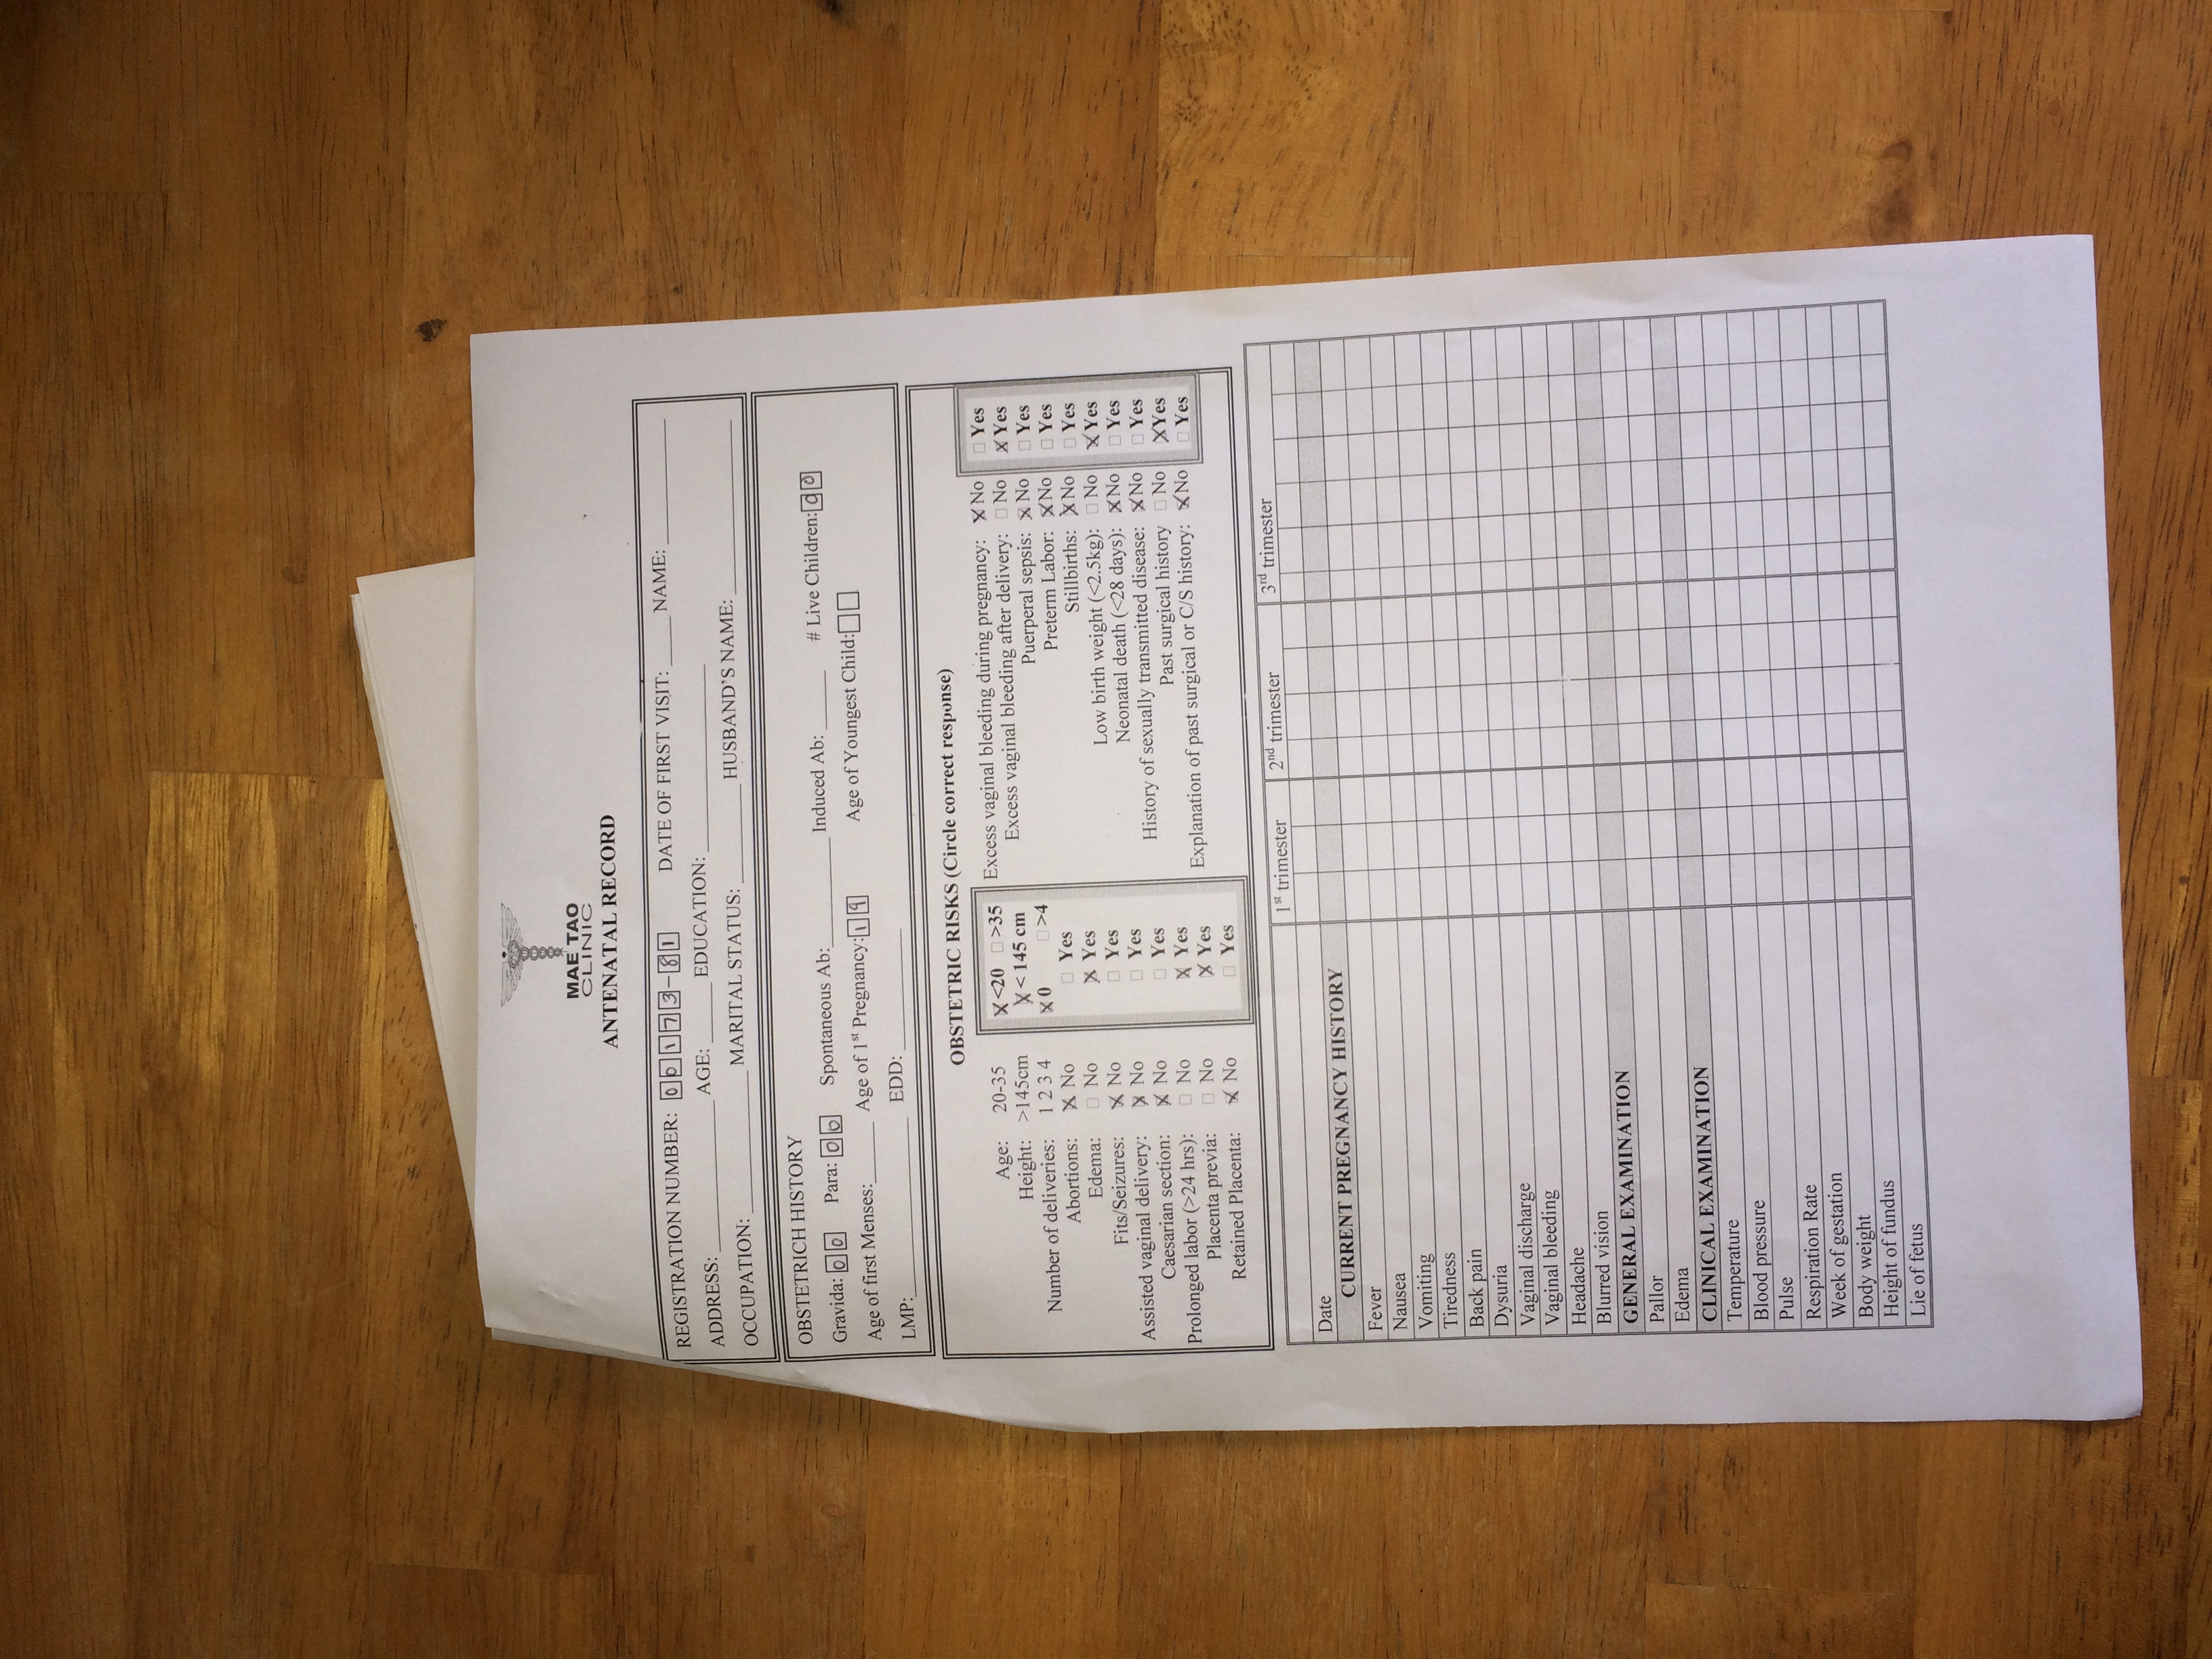 MAE TAO
CLINIC
ANTENATAL RECORD
REGISTRATION NUMBER: 00173-81 DATE OF FIRST VISIT: _____ NAME: _____________
ADDRESS: _______________ AGE: ______ EDUCATION: ___________________
OCCUPATION: ______________ MARITAL STATUS: __________ HUSBAND'S NAME: _________________
OBSTETRICH HISTORY
Gravida: 00 Para: 00 Spontaneous Ab:___________ Induced Ab: ______ # Live Children: 00
Age of first Menses:______ Age of 1st Pregnancy: 19 Age of Youngest Child: □□
LMP:__________________ EDD: ____________
OBSTETRIC RISKS (Circle correct response)
Age: 20-35 ☒ <20 □ >35
Height: >145cm ☒ < 145 cm
Number of deliveries: 1 2 3 4 ☒ 0 □ >4
Abortions: ☒ No □ Yes
Edema: □ No ☒ Yes
Fits/Seizures: ☒ No □ Yes
Assisted vaginal delivery: ☒ No □ Yes
Caesarian section: ☒ No □ Yes
Prolonged labor (>24 hrs): □ No ☒ Yes
Placenta previa: □ No ☒ Yes
Retained Placenta: ☒ No □ Yes
Excess vaginal bleeding during pregnancy: ☒ No □ Yes
Excess vaginal bleeding after delivery: □ No ☒ Yes
Puerperal sepsis: ☒ No □ Yes
Preterm Labor: ☒ No □ Yes
Stillbirths: ☒ No □ Yes
Low birth weight (<2.5kg): □ No ☒ Yes
Neonatal death (<28 days): ☒ No □ Yes
History of sexually transmitted disease: ☒ No □ Yes
Past surgical history □ No ☒ Yes
Explanation of past surgical or C/S history: ☒ No □ Yes
1st trimester 2nd trimester 3rd trimester
Date
CURRENT PREGNANCY HISTORY
Fever
Nausea
Vomiting
Tiredness
Back pain
Dysuria
Vaginal discharge
Vaginal bleeding
Headache
Blurred vision
GENERAL EXAMINATION
Pallor
Edema
CLINICAL EXAMINATION
Temperature
Blood pressure
Pulse
Respiration Rate
Week of gestation
Body weight
Height of fundus
Lie of fetus